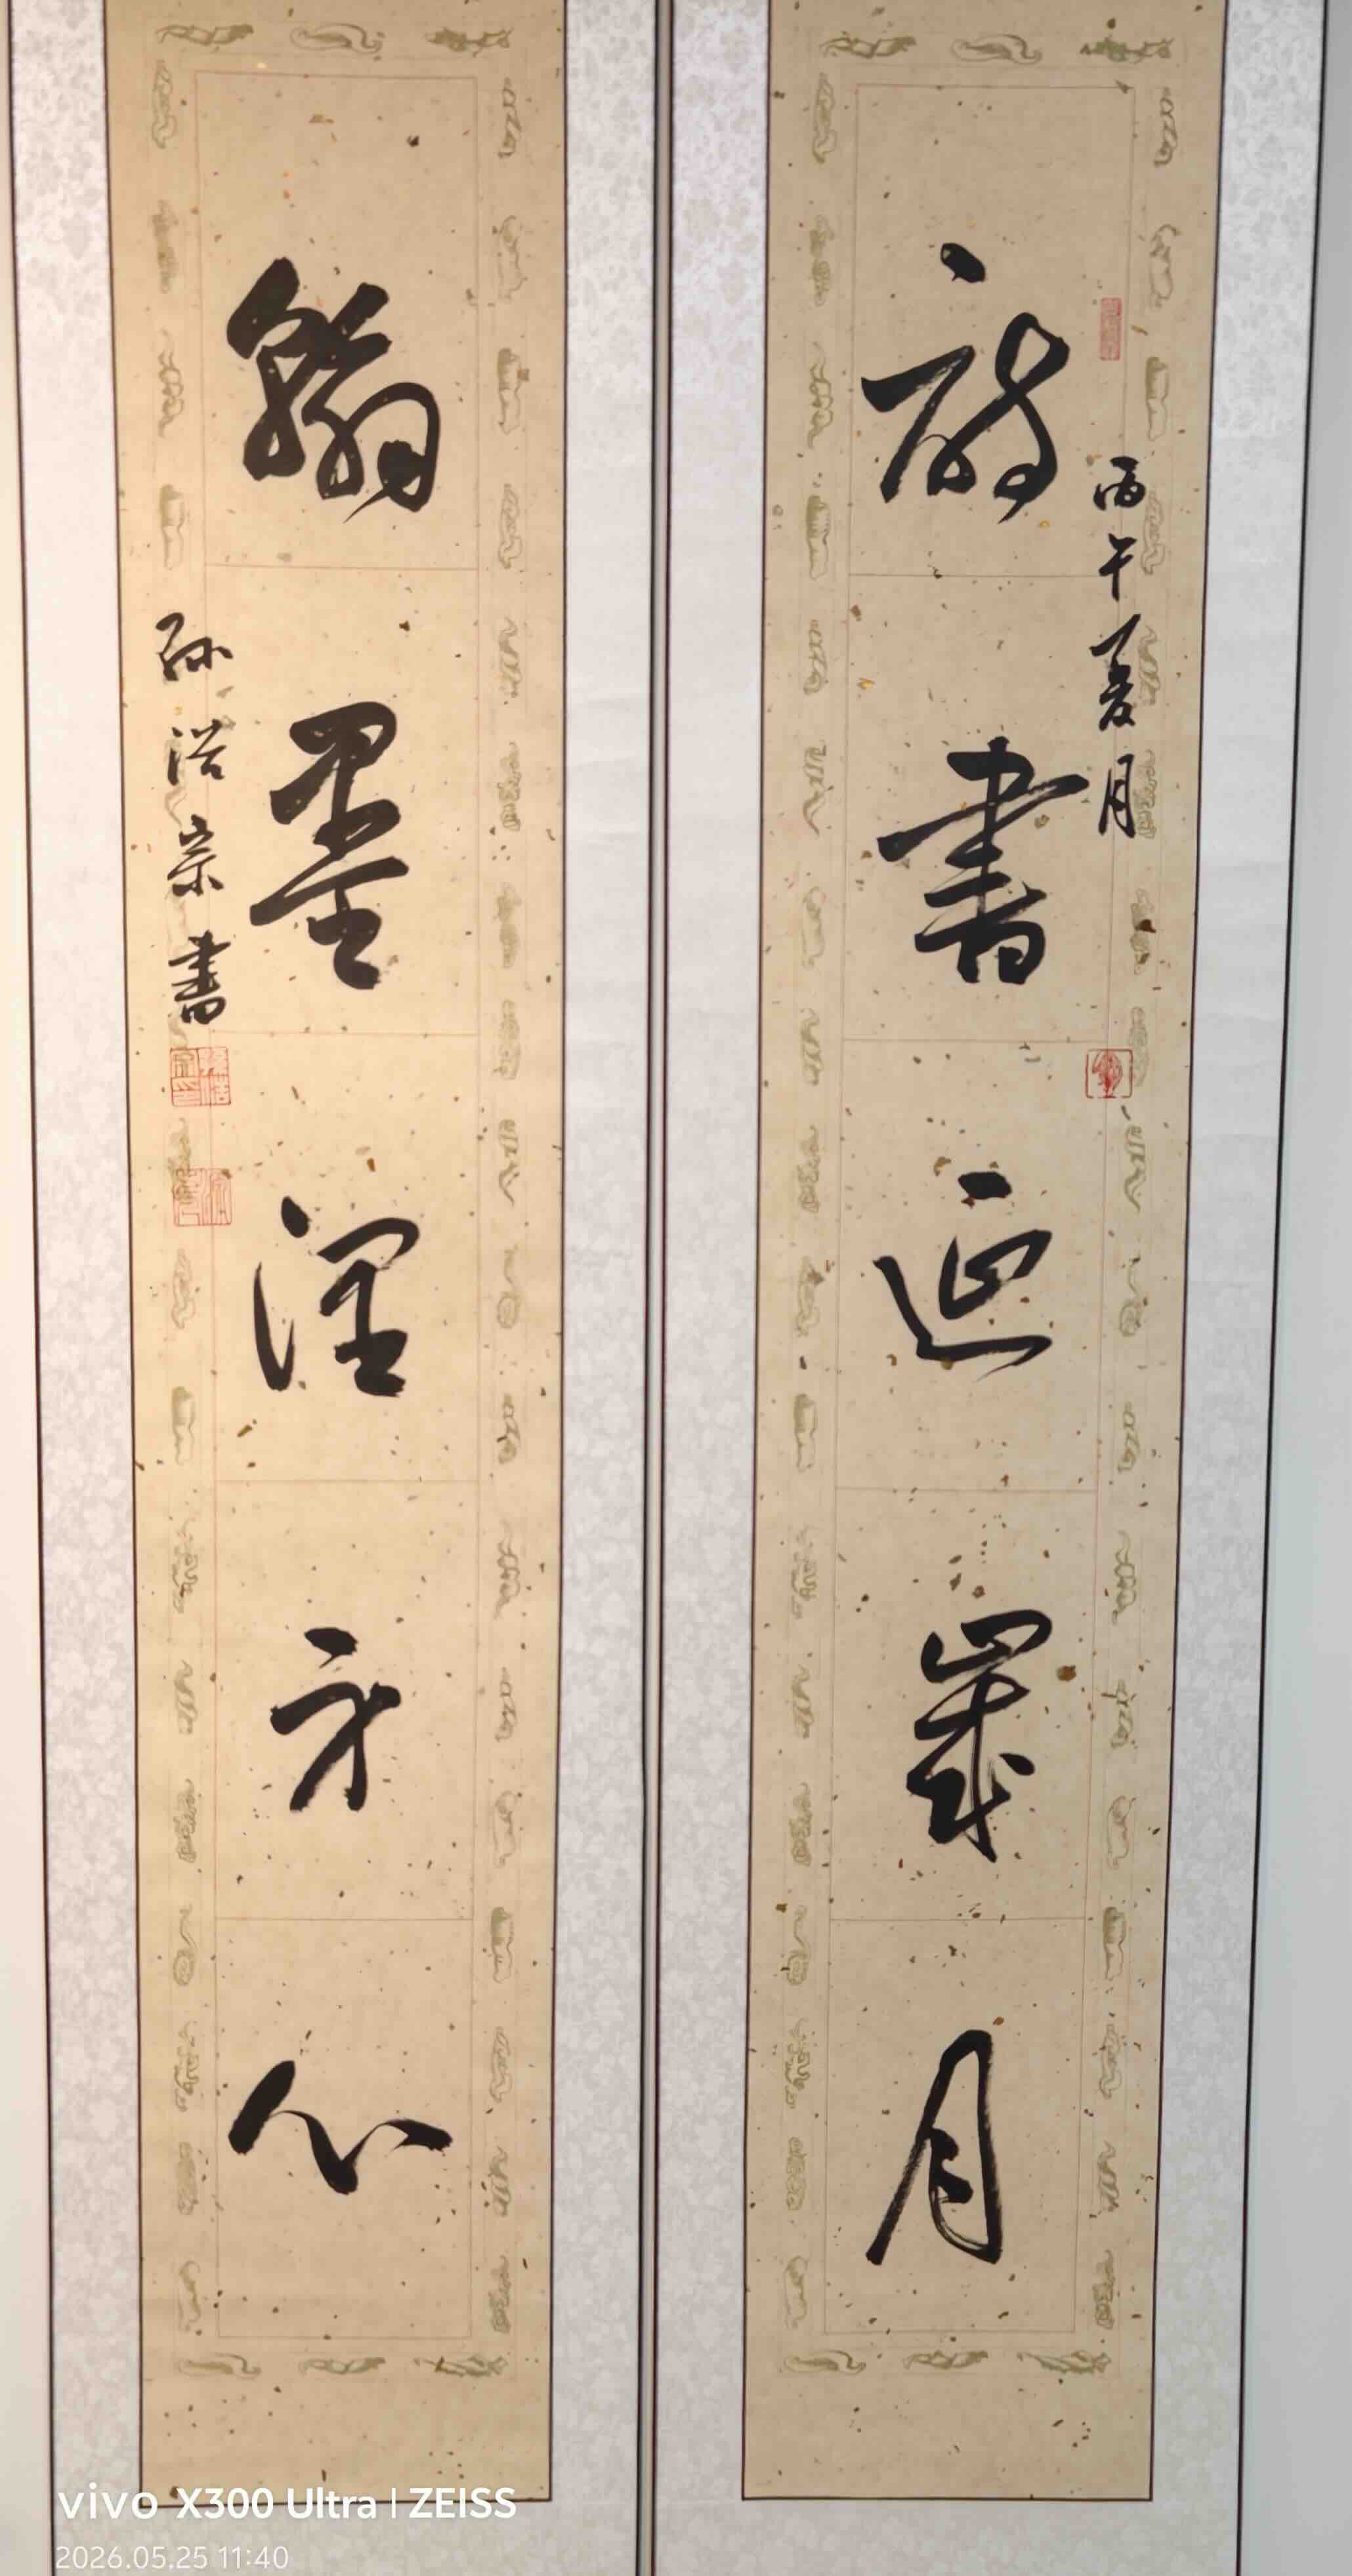 詩書延歲月
丙午夏月
翰墨潤身心
孫浩宗書
vivo X300 Ultra | ZEISS
2026.05.25 11:40